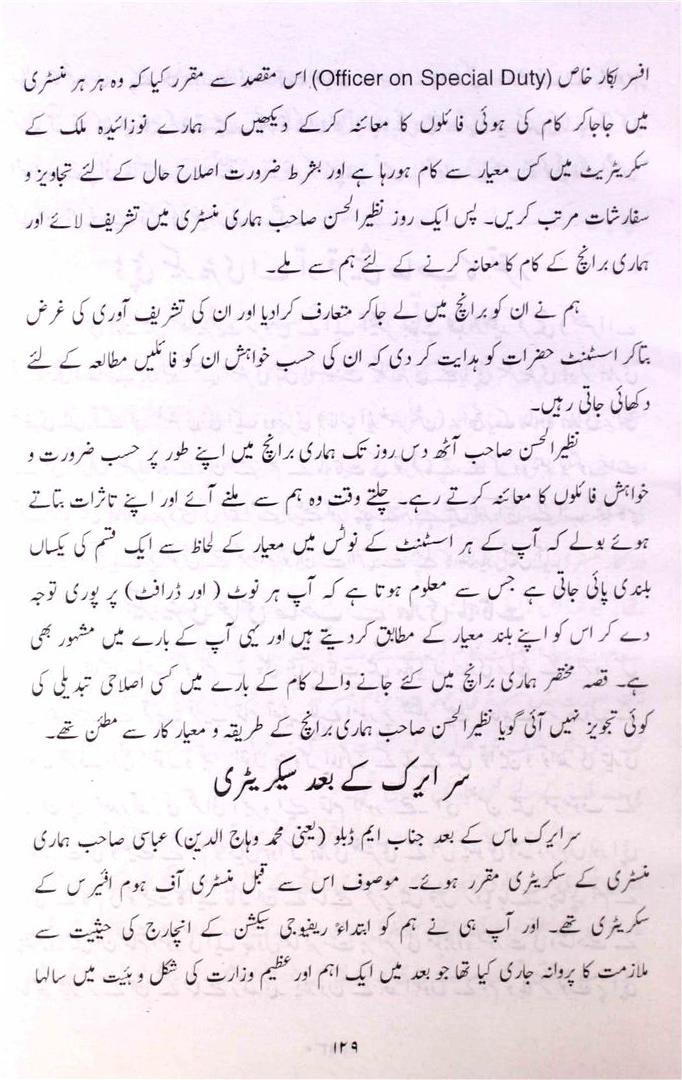 افسر بکار خاص (Officer on Special Duty) اس مقصد سے مقرر کیا کہ وہ ہر ہر منسٹری
میں جاجاکر کام کی ہوئی فائلوں کا معائنہ کرکے دیکھیں کہ ہمارے نوزائیدہ ملک کے
سکریٹریٹ میں کس معیار سے کام ہورہا ہے اور بشرط ضرورت اصلاح حال کے لئے تجاویز و
سفارشات مرتب کریں۔ پس ایک روز نظیرالحسن صاحب ہماری منسٹری میں تشریف لائے اور
ہماری برانچ کے کام کا معانہ کرنے کے لئے ہم سے ملے۔
ہم نے ان کو برانچ میں لے جاکر متعارف کرادیا اور ان کی تشریف آوری کی غرض
بتاکر اسسٹنٹ حضرات کو ہدایت کر دی کہ ان کی حسب خواہش ان کو فائلیں مطالعہ کے لئے
دکھائی جاتی رہیں۔
نظیرالحسن صاحب آٹھ دس روز تک ہماری برانچ میں اپنے طور پر حسب ضرورت و
خواہش فائلوں کا معائنہ کرتے رہے۔ چلتے وقت وہ ہم سے ملنے آئے اور اپنے تاثرات بتاتے
ہوئے بولے کہ آپ کے ہر اسسٹنٹ کے نوٹس میں معیار کے لحاظ سے ایک قسم کی یکساں
بلندی پائی جاتی ہے جس سے معلوم ہوتا ہے کہ آپ ہر نوٹ ( اور ڈرافٹ) پر پوری توجہ
دے کر اس کو اپنے بلند معیار کے مطابق کردیتے ہیں اور یہی آپ کے بارے میں مشہور بھی
ہے۔ قصہ مختصر ہماری برانچ میں کئے جانے والے کام کے بارے میں کسی اصلاحی تبدیلی کی
کوئی تجویز نہیں آئی گویا نظیرالحسن صاحب ہماری برانچ کے طریقہ و معیار کار سے مطمئن تھے۔
سر ایرک کے بعد سیکریٹری
سر ایرک ماس کے بعد جناب ایم ڈبلو (یعنی محمد وہاج الدین) عباسی صاحب ہماری
منسٹری کے سکریٹری مقرر ہوئے۔ موصوف اس سے قبل منسٹری آف ہوم افیرس کے
سکریٹری تھے۔ اور آپ ہی نے ہم کو ابتداءً ریفیوجی سیکشن کے انچارج کی حیثیت سے
ملازمت کا پروانہ جاری کیا تھا جو بعد میں ایک اہم اور عظیم وزارت کی شکل و ہیئت میں سالہا
۱۲۹